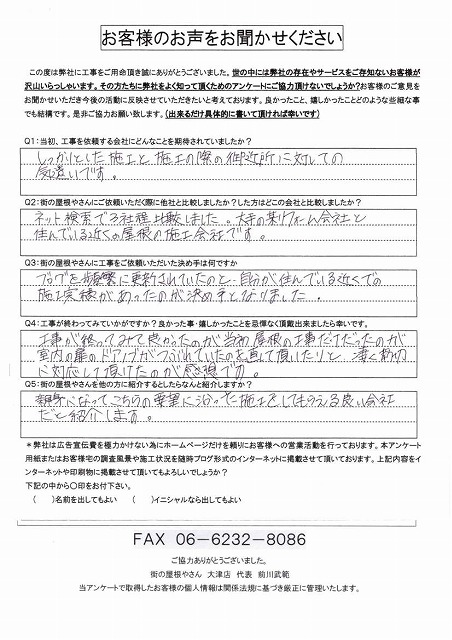 お客様のお声をお聞かせください
この度は弊社に工事をご用命頂き誠にありがとうございました。世の中には弊社の存在やサービスをご存知ないお客様が
沢山いらっしゃいます。その方たちに弊社をよく知って頂くためのアンケートにご協力頂けないでしょうか?お客様のご意見を
お聞かせいただき今後の活動に反映させていただきたいと考えております。良かったこと、嬉しかったことどのような些細な事
でも結構です。是非ご協力お願い致します。(出来るだけ具体的に書いて頂ければ幸いです)
Q1:当初、工事を依頼する会社にどんなことを期待されていましたか?
しっかりとした施工と施工の際の御近所に対しての
気遣いです。
Q2:街の屋根やさんにご依頼いただく際に他社と比較しましたか?した方はどこの会社と比較しましたか?
ネット検索で3社程比較しました。大手の某リフォーム会社と
住んでいる近くの屋根の施工会社です。
Q3:街の屋根やさんに工事をご依頼いただいた決め手は何ですか
ブログを頻繁に更新されていたのと自分が住んでいる近くでの
施工実績があったのが決め手となりました。
Q4:工事が終わってみていかがですか?良かった事・嬉しかったことを忌憚なく頂戴出来ましたら幸いです。
工事が終ってみて良かったのが当初屋根の工事だけだったのが
室内の扉のドアノブがつぶれていたのを直して頂いたりと 凄く親切
に対応して頂けたのが感想です。
Q5:街の屋根やさんを他の方に紹介するとしたらなんと紹介しますか?
親身になって、こちらの要望に沿った施工をしてもらえる良い会社
だと紹介します。
*弊社は広告宣伝費を極力かけない為にホームページだけを頼りにお客様への営業活動を行っております。本アンケート
用紙またはお客様宅の調査風景や施工状況を随時ブログ形式のインターネットに掲載させて頂いております。上記内容をイ
ンターネットや印刷物に掲載させて頂いてもよろしいでしょうか?
下記の中から〇印をお付下さい。
( )名前を出してもよい ( )イニシャルなら出してもよい
FAX 06-6232-8086
ご協力ありがとうございました。
街の屋根やさん 大津店 代表 前川武範
当アンケートで取得したお客様の個人情報は関係法規に基づき厳正に管理いたします。